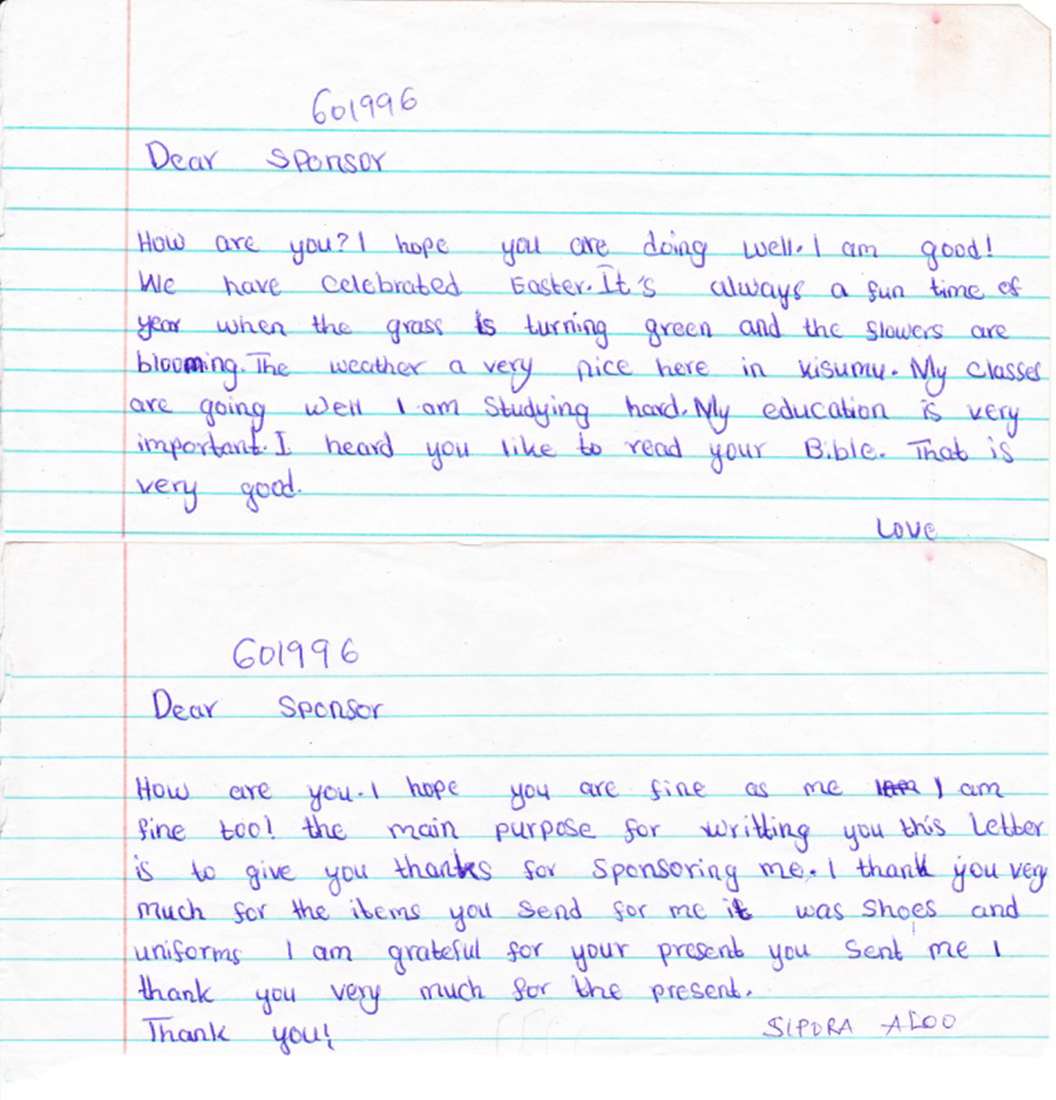 601996
Dear Sponsor
How are you? I hope you are doing well. I am good!
We have celebrated Easter. It's always a fun time of
year when the grass is turning green and the flowers are
blooming. The weather a very nice here in kisumu. My classes
are going well I am Studying hard. My education is very
important. I heard you like to read your Bible. That is
very good.
Love
601996
Dear Sponsor
How are you. I hope you are fine as me I am
fine too! the main purpose for writting you this Letter
is to give you thanks for Sponsoring me. I thank you very
much for the items you Send for me it was Shoes and
uniforms I am grateful for your present you Sent me I
thank you very much for the present.
Thank you!
SIPORA ALOO